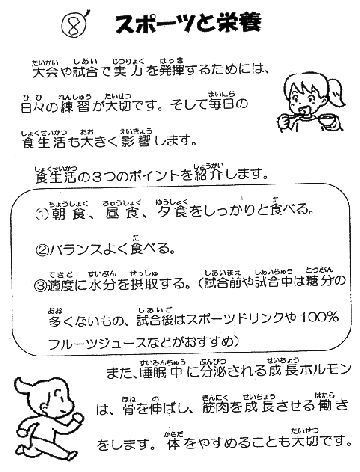 ⑧ スポーツと栄養
大会や試合で実力を発揮するためには、
日々の練習が大切です。そして毎日の
食生活も大きく影響します。
食生活の3つのポイントを紹介します。
①朝食、昼食、夕食をしっかりと食べる。
②バランスよく食べる。
③適度に水分を摂取する。(試合前や試合中は糖分の
多くないもの、試合後はスポーツドリンクや100%
フルーツジュースなどがおすすめ)
また、睡眠中に分泌される成長ホルモン
は、骨を伸ばし、筋肉を成長させる働き
をします。体をやすめることも大切です。